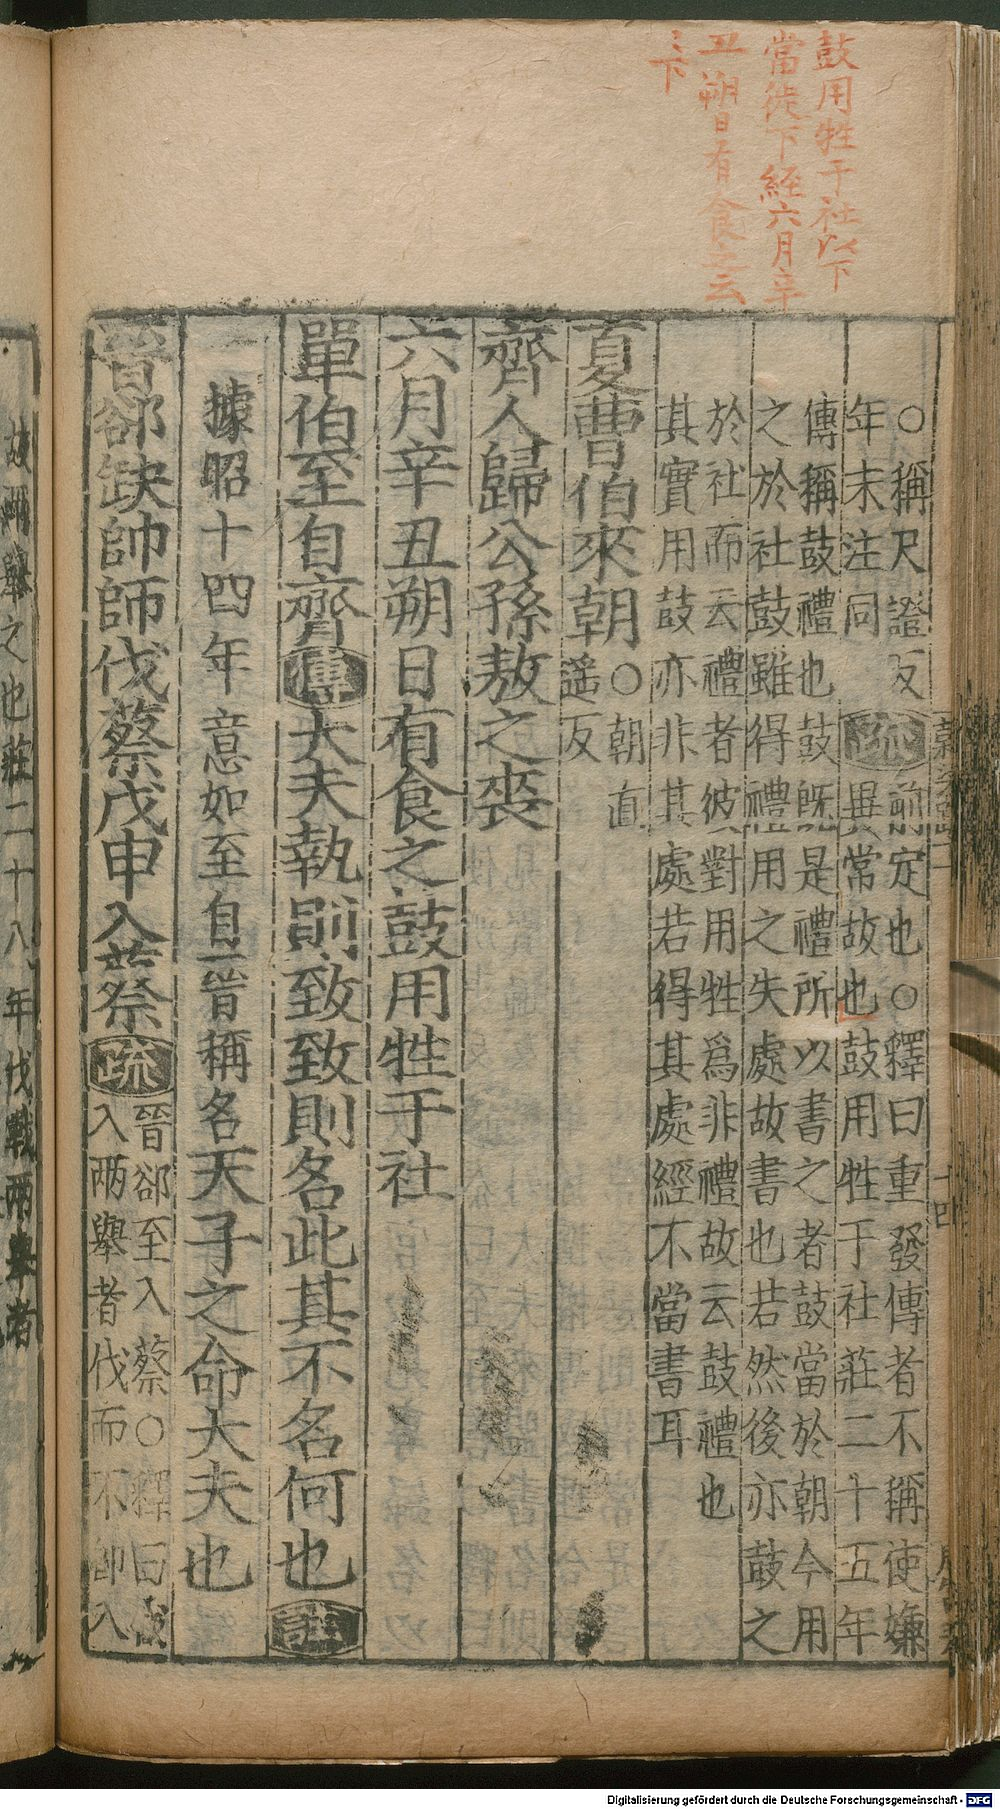 鼓用牲于社以下
當從下經六月辛
丑朔日有食之云
之下
○稱尺證反
年末注同
疏
前定也○釋曰重發傳者不稱使嫌
異常故也鼓用牲于社莊二十五年
傳稱鼓禮也鼓既是禮所以書之者鼓當於朝今用
之於社鼓雖得禮用之失處故書也若然後亦鼓之
於社而云禮者彼對用牲爲非禮故云鼓禮也
其實用鼓亦非其處若得其處經不當書耳
夏曹伯來朝
○朝直
遥反
齊人歸公孫敖之喪
六月辛丑朔日有食之鼓用牲于社
單伯至自齊傳大夫執則致致則名此其不名何也注
據昭十四年意如至自晉稱名天子之命大夫也
晉郤缺帥師伐蔡戊申入蔡疏
晉郤至入蔡○釋曰
入兩舉者伐而不即入
故兩舉之也莊二十八年伐戰兩舉者
十四
Digitalisierung gefördert durch die Deutsche Forschungsgemeinschaft - DFG